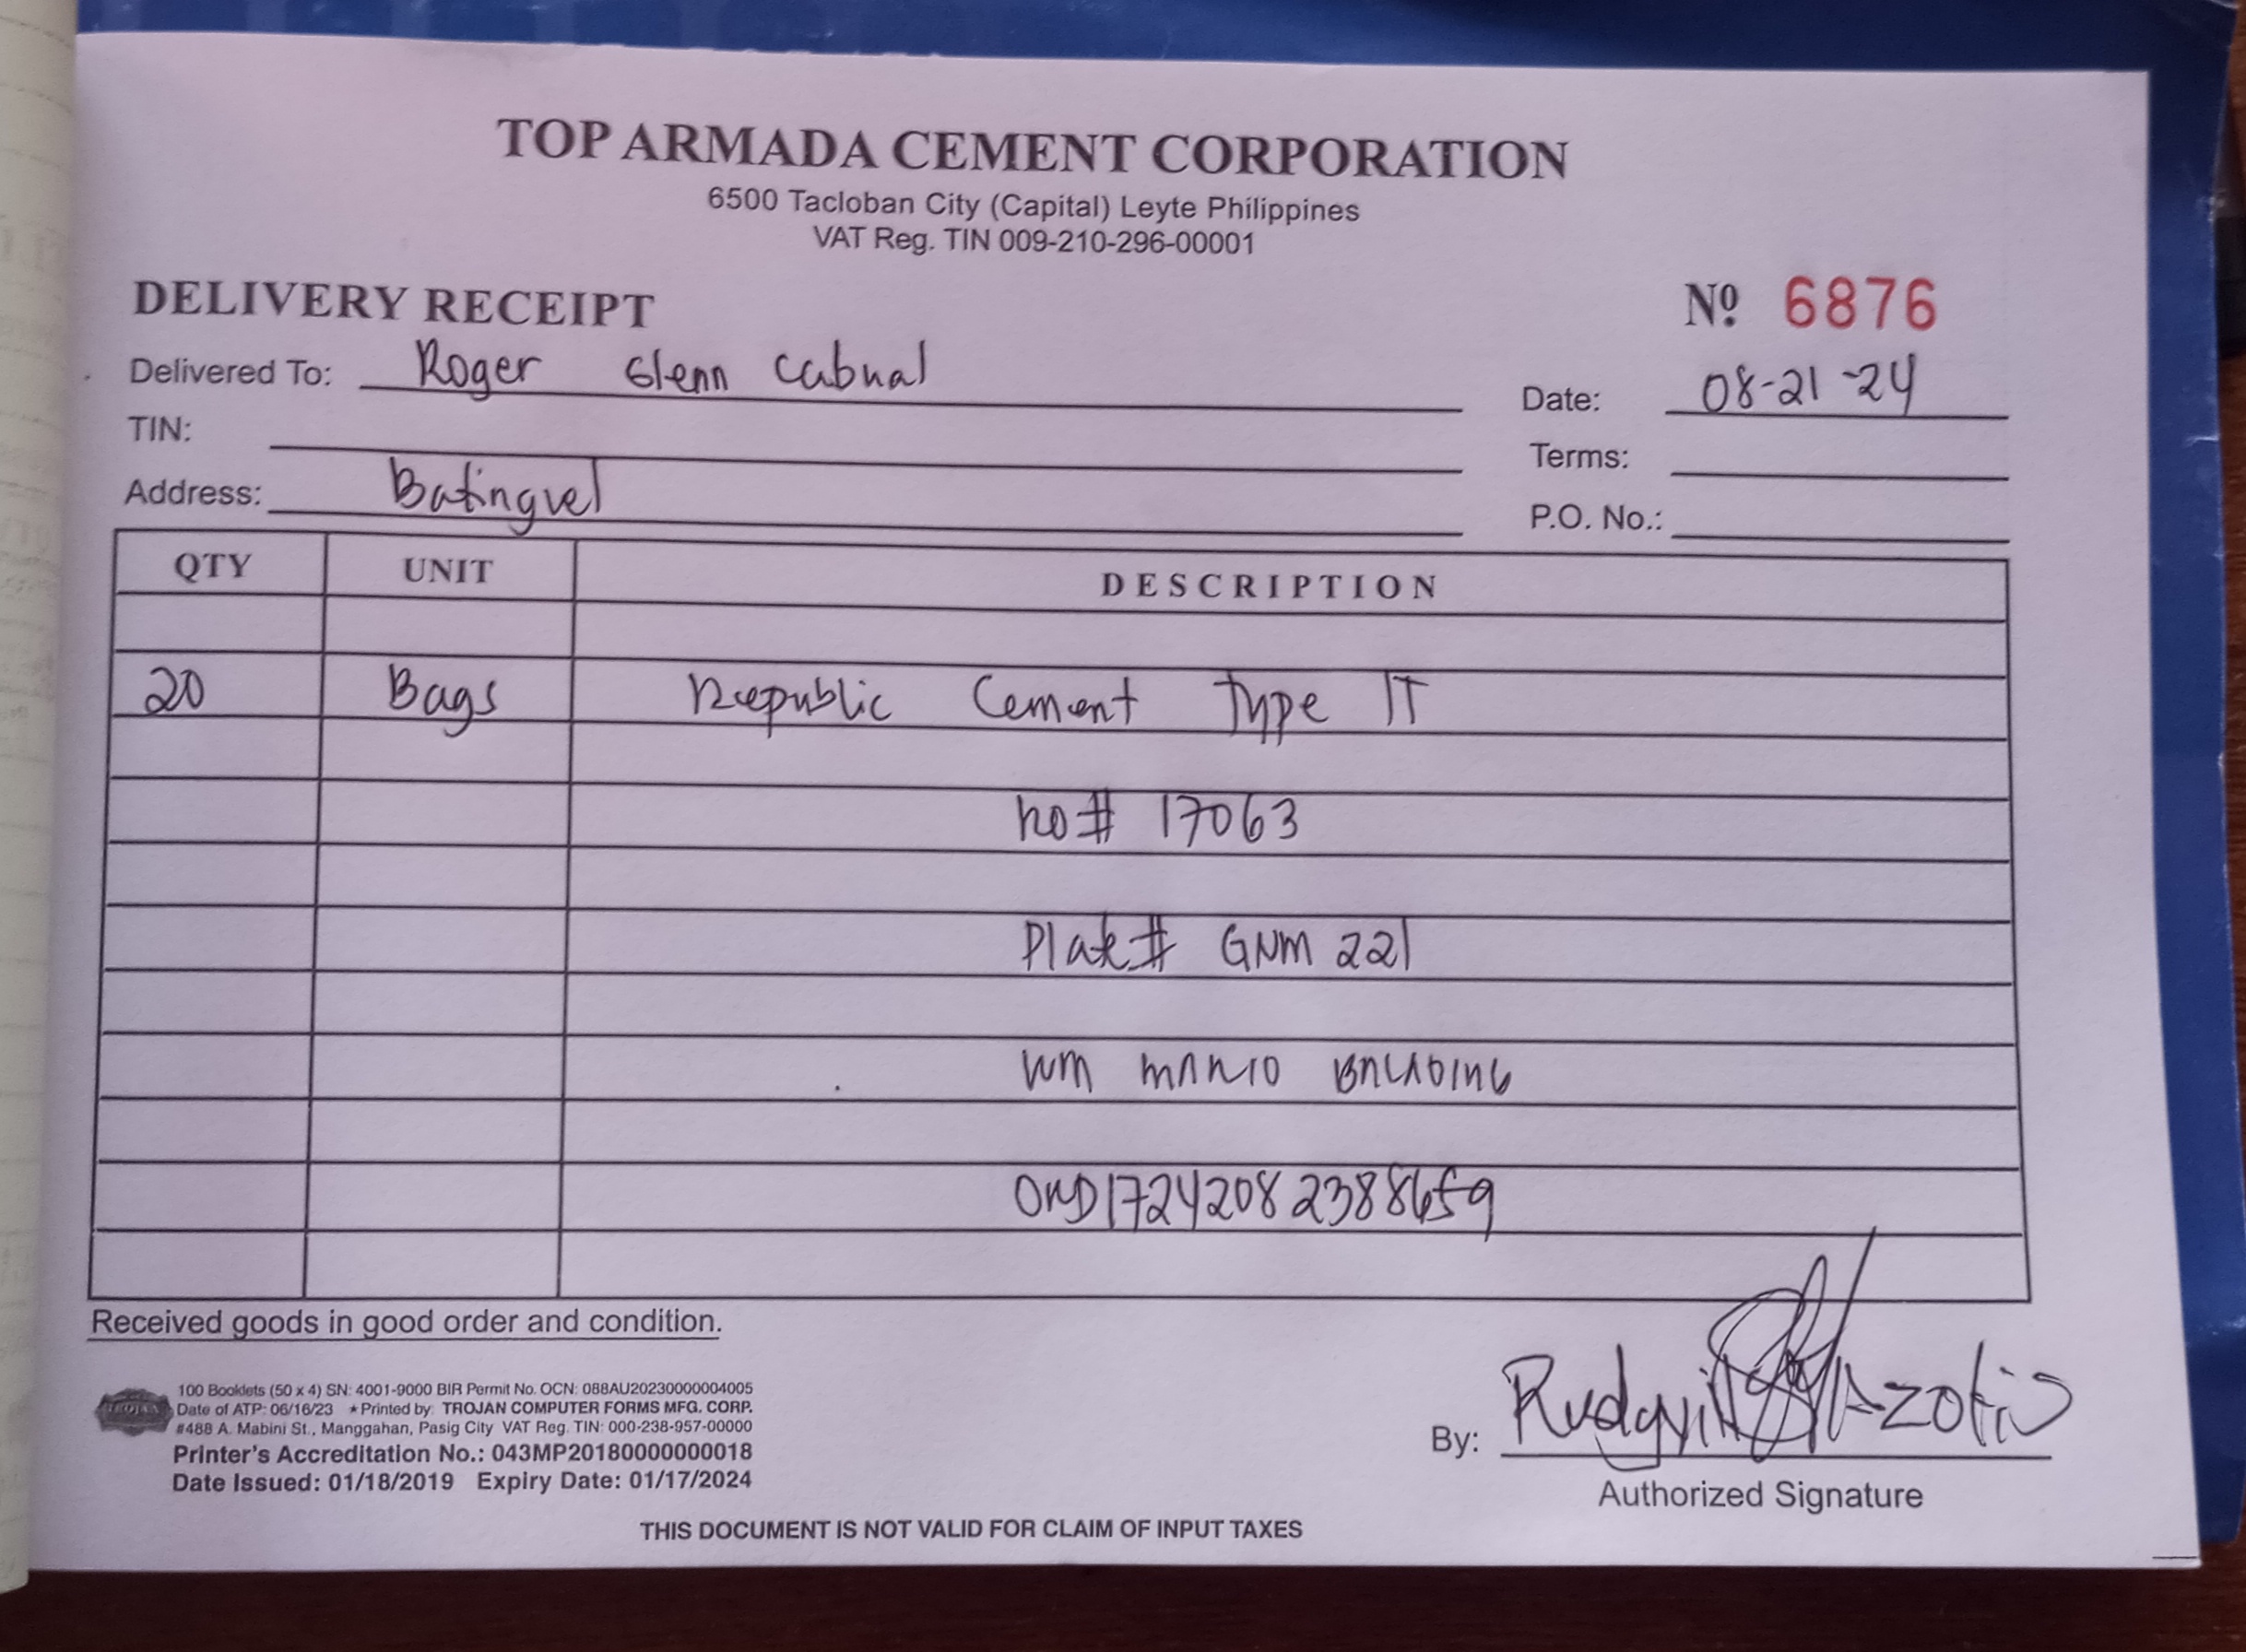 TOP ARMADA CEMENT CORPORATION
6500 Tacloban City (Capital) Leyte Philippines
VAT Reg. TIN 009-210-296-00001
DELIVERY RECEIPT
Nº 6876
Delivered To: Roger Glenn Cabual
Date: 08-21-24
TIN:
Terms:
Address: Batinguel
P.O. No.:
QTY UNIT DESCRIPTION
20 Bags Republic Cement Type IT
RO# 17063
Plate# GNM 221
WM MARIO
ORD1724208238 8659
Received goods in good order and condition.
100 Booklets (50 x 4) SN: 4001-9000 BIR Permit No. OCN: 088AU20230000004005
Date of ATP: 06/16/23 ★Printed by: TROJAN COMPUTER FORMS MFG. CORP.
#488 A. Mabini St., Manggahan, Pasig City VAT Reg. TIN: 000-238-957-00000
Printer's Accreditation No.: 043MP20180000000018
Date Issued: 01/18/2019 Expiry Date: 01/17/2024
By:
Authorized Signature
THIS DOCUMENT IS NOT VALID FOR CLAIM OF INPUT TAXES